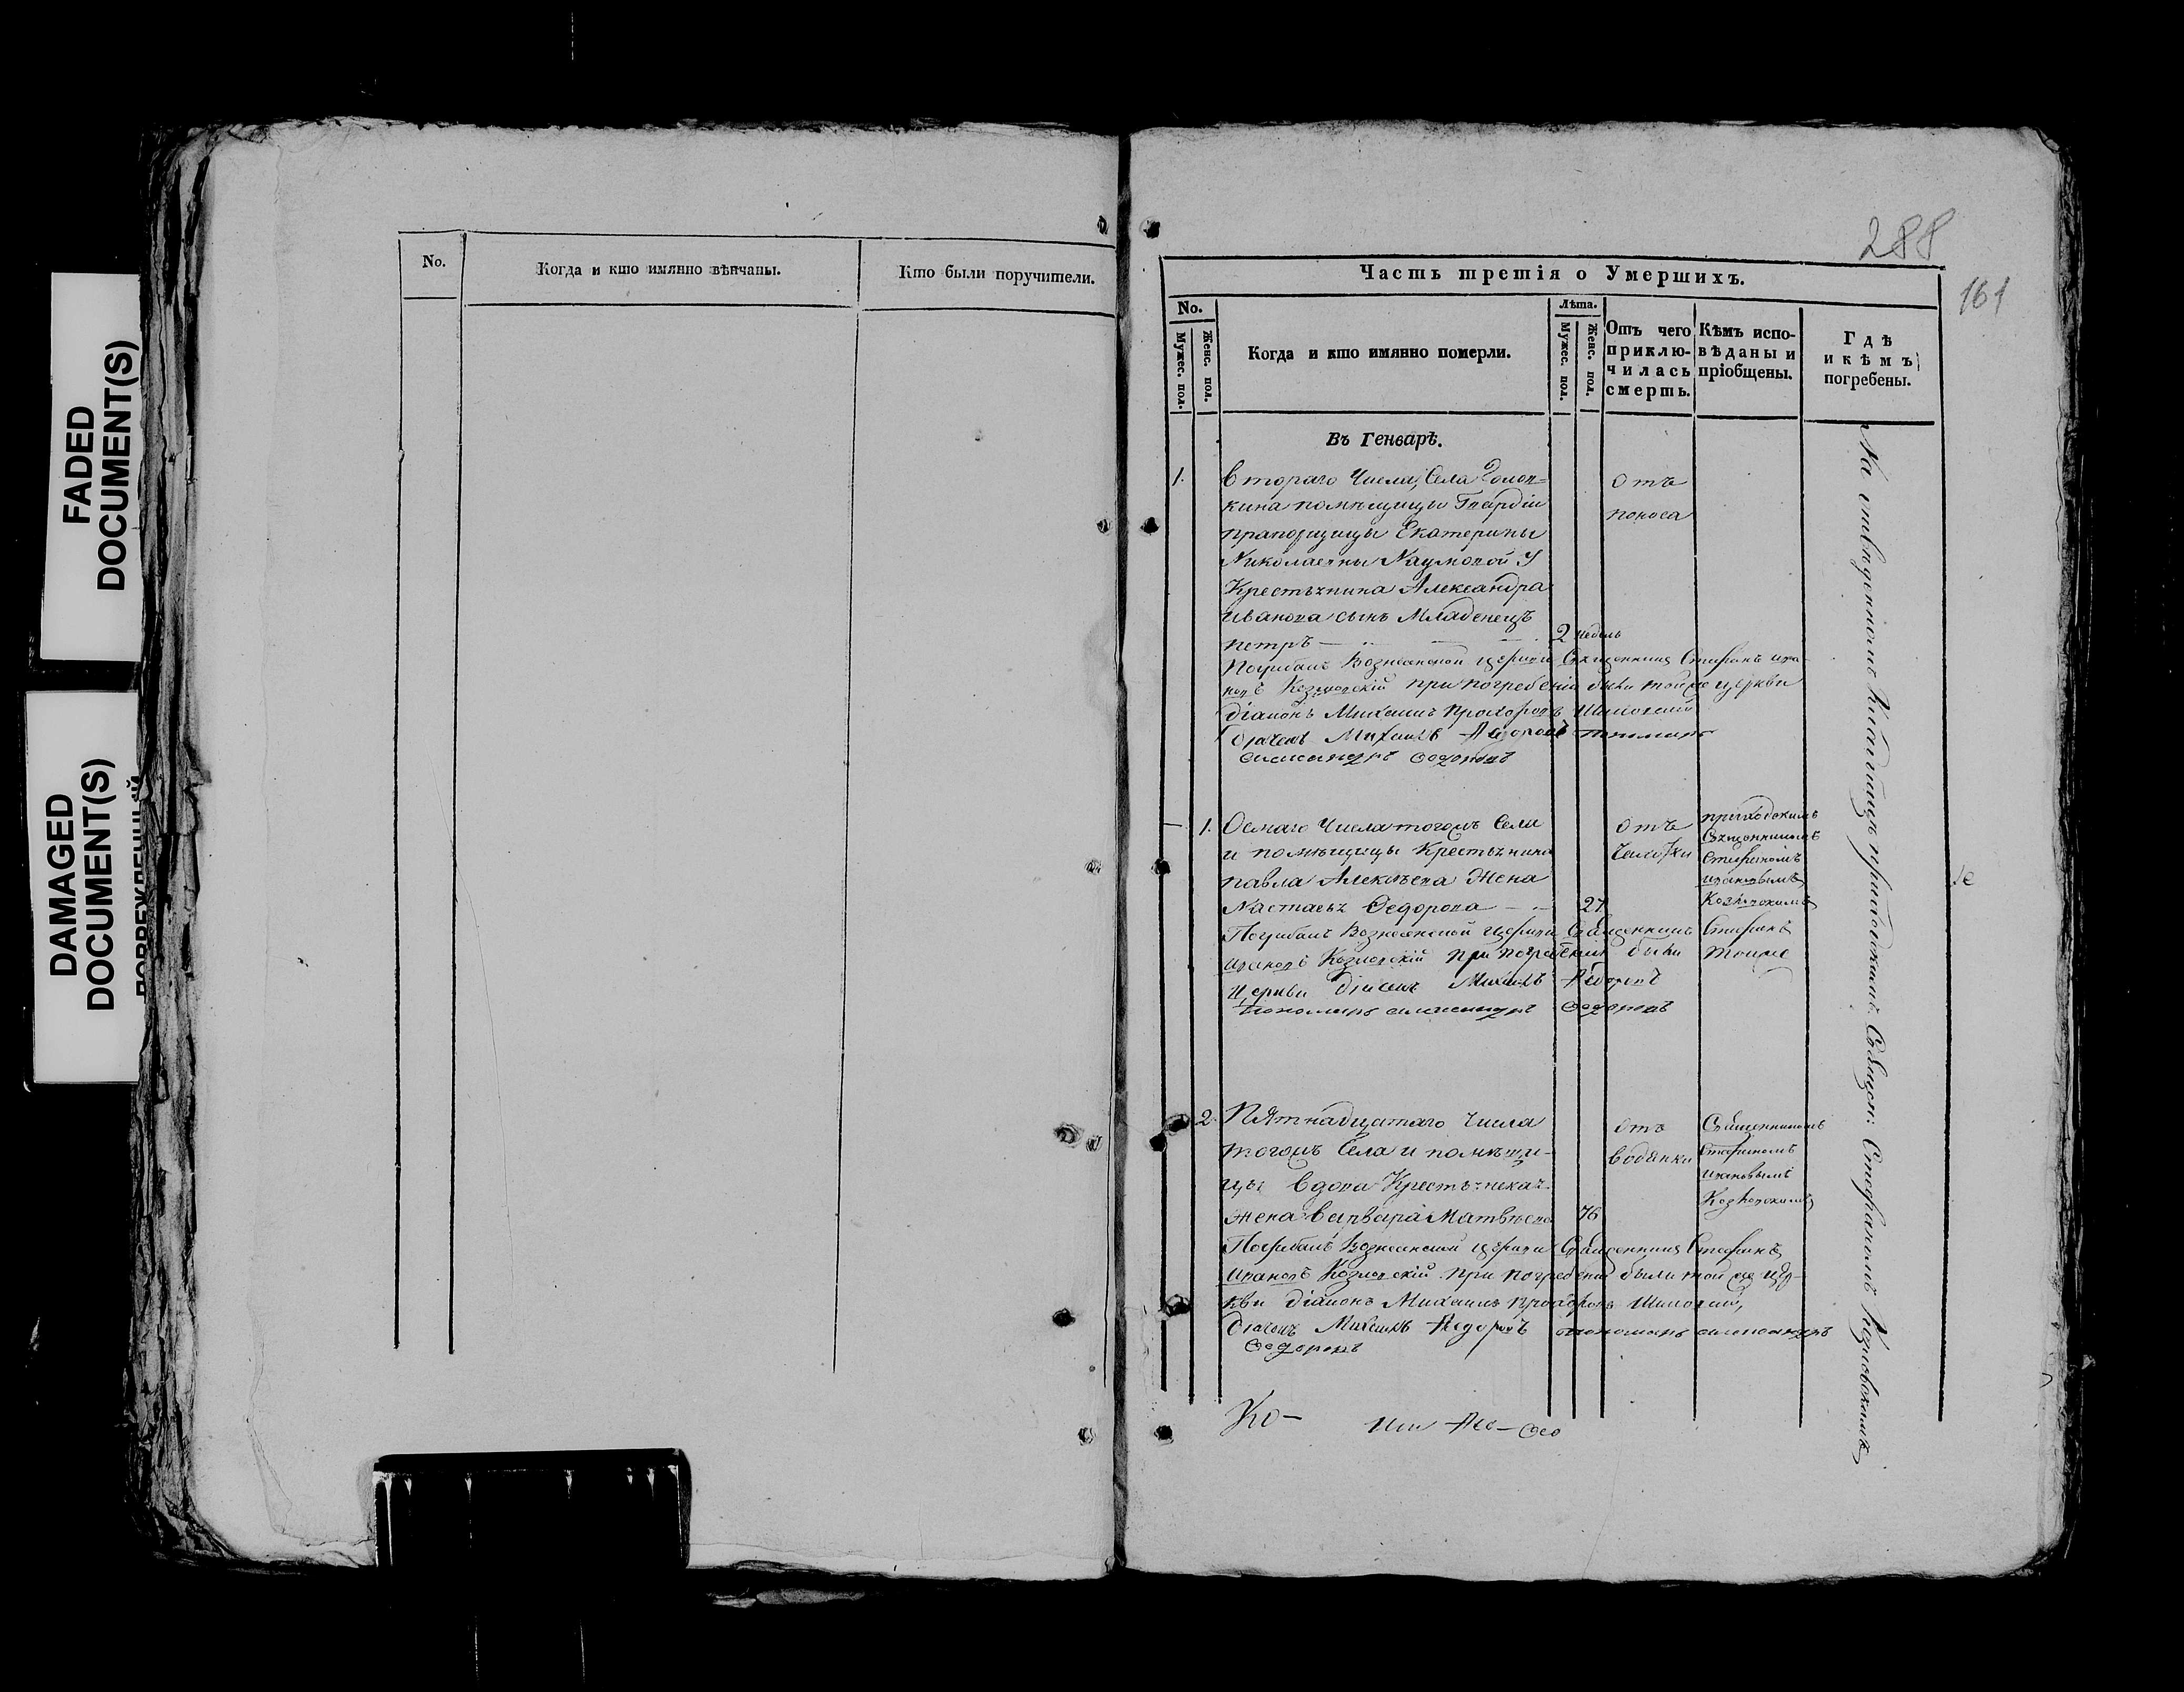 FADED
DOCUMENT(S)
DAMAGED
DOCUMENT(S)
No.
Когда и кто имянно вѣнчаны.
Кто были поручители.
288
161
Часть третія о Умершихъ.
No.
Мужес. пол.
Женс. пол.
Когда и кто имянно померли.
Лѣта.
Мужес. пол.
Женс. пол.
Отъ чего
приклю-
чилась
смерть.
Кѣмъ испо-
вѣданы и
пріобщены.
Гдѣ
и кѣмъ
погребены.
Въ Генварѣ.
1.
Втораго Числа, Села
кина помѣщицы Гвардіи
прапорщицы Екатерины
Николаевны Наумовой У
Крестьянина Александра
Иванова сынъ Младенецъ
петръ
2 недель
отъ
поноса
Погребалъ Вознесенской церкви Священникъ Стефанъ Ива-
новъ Козловскій при погребеніи были той же церкви
діаконъ Михаилъ Прохоровъ
дьячекъ Михаилъ Федоровъ пономарь
александръ Федоровъ
1.
Осмаго Числа тогожъ Села
и помѣщицы Крестьянина
павла Алексѣева Жена
Настасья Федорова
27
отъ
чахотки
приходскимъ
Священникомъ
Стефаномъ
Ивановымъ
Козловскимъ
Погребалъ Вознесенской Церкви Священникъ Стефанъ
Ивановъ Козловскій при погребеніи были тоиже
Церкви дьячекъ Михаилъ Федоровъ
пономарь александръ Федоровъ
2.
Пятнадцатаго Числа
тогожъ Села и помѣщи-
цы вдова Крестьянская
жена варвара Матвѣева
76
отъ
водянки
Священникомъ
Стефаномъ
Ивановымъ
Козловскимъ
Погребалъ Вознесенской церкви Священникъ Стефанъ
Ивановъ Козловскій при погребеніи были той же цер-
кви діаконъ Михаилъ Прохоровъ
дьячекъ Михаилъ Федоровъ пономарь александръ
Федоровъ
На отведенномъ Кладбищѣ приходскимъ Священ: Стефаномъ Козловскимъ
Ко-